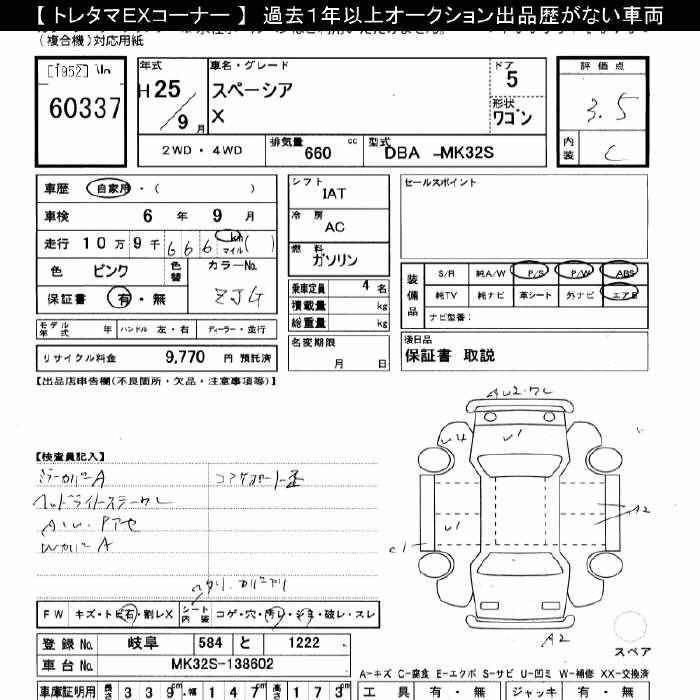 【 トレタマEXコーナー 】 過去１年以上オークション出品歴がない車両
(複合機)対応用紙
60337
年式
H 25
9 月
車名・グレード
スペーシア
X
ドア
5
形状
ワゴン
評価点
3.5
内装
C
2WD・4WD
排気量
660 cc
型式
DBA -MK32S
車歴 自家用・( )
車検 6 年 9 月
走行 10万 9千 666 km マイル( )
色 ピンク
色替
カラーNo.
ZJG
保証書 有・無
モデル年式 年
ハンドル 左・右
ディーラー・並行
リサイクル料金 9,770 円 預託済
シフト
IAT
冷房
AC
燃料
ガソリン
乗車定員 4 名
積載量 kg
総重量 kg
名変期限
月 日
セールスポイント
装備品
S/R 純A/W P/S P/W ABS
純TV 純ナビ 革シート 外ナビ エアB
ナビ型番:
後日品
保証書 取説
【出品店申告欄(不良箇所・欠品・注意事項等)】
【検査員記入】
ミラーカバーA
コアサポート歪
ヘッドライトステークレ
WカバーA
U4
U1
A2
U1
C1
A2
スペア
FW キズ・トビ石・割レX
シート内装 コゲ・穴・汚レ・シミ・破レ・スレ
登録No. 岐阜 584 と 1222
車台No. MK32S-138602
A-キズ C-腐食 E-エクボ S-サビ U-凹ミ W-補修 XX-交換済
車庫証明用 長さ 339cm 幅 147cm 高さ 173cm
工具 有・無 ジャッキ 有・無